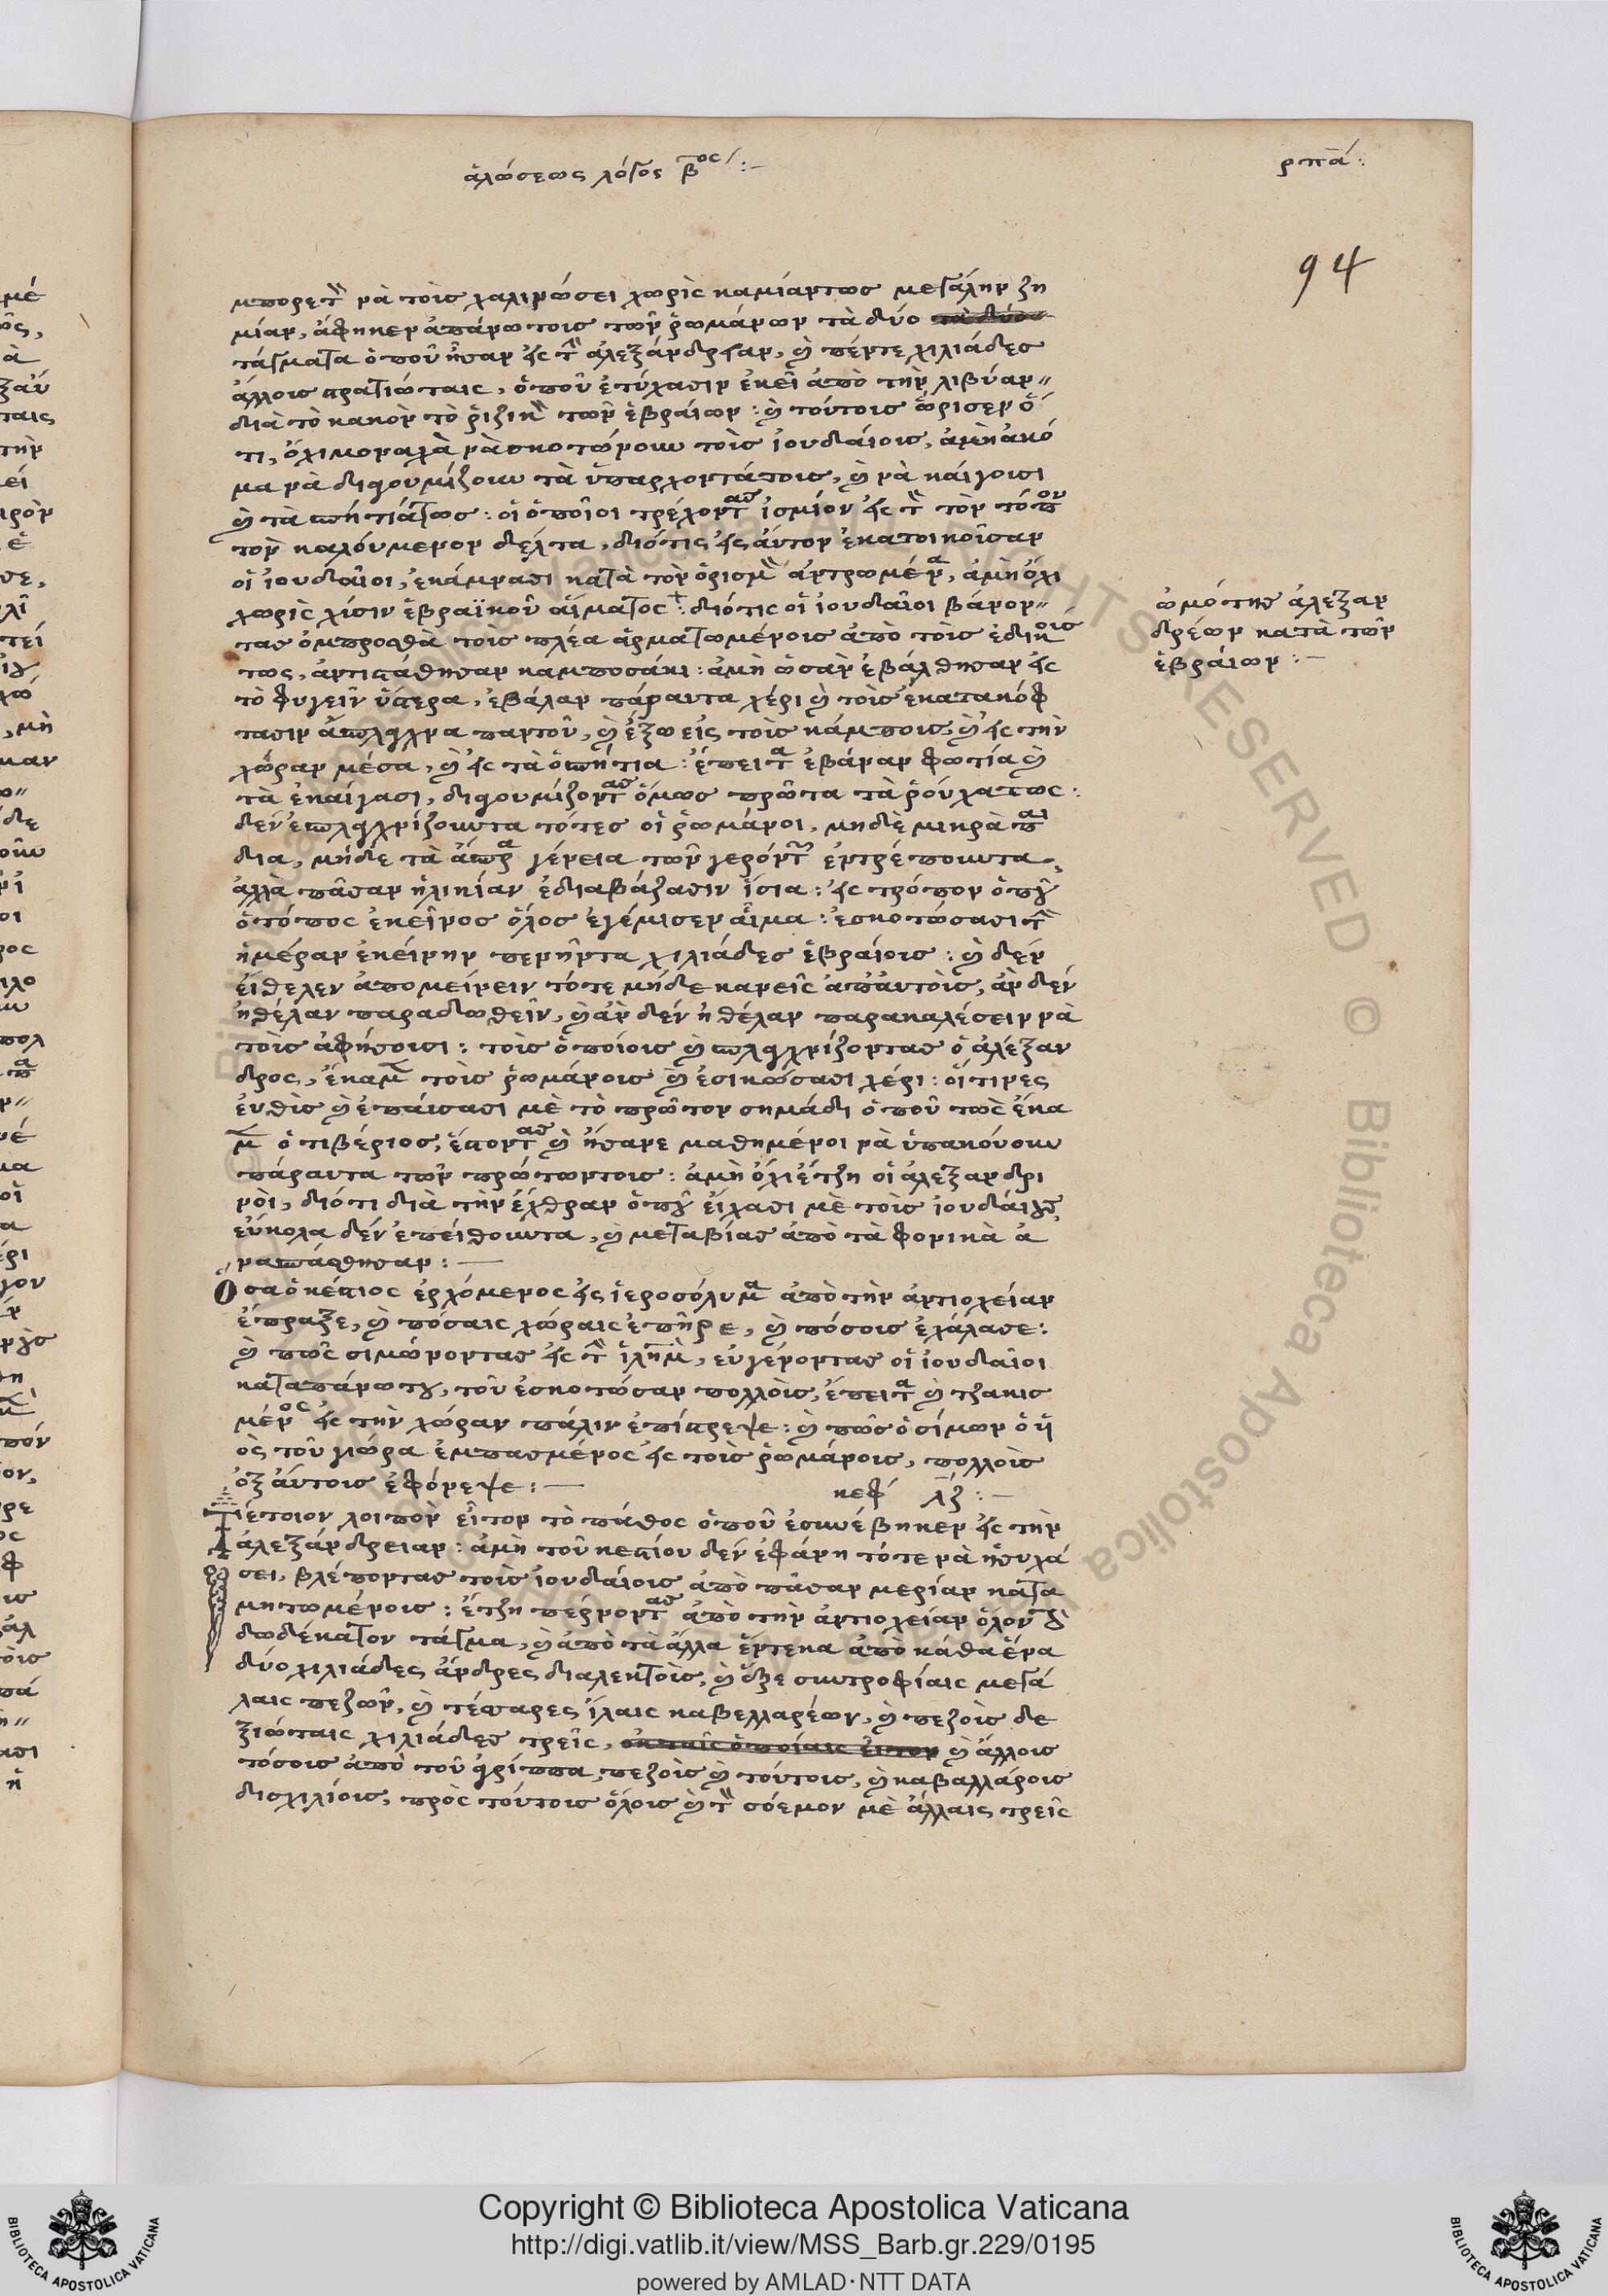 ἁλώσεως λόγος βος :—
ρπα :
94
μπορετὸ νὰ τοὶς χαλινώσει χωρὶς καμίαντως μεγάλην ζη
μίαν, ἄφηκεν ἀπάνω τοις τῶν ῥωμάνων τὰ δύο
τάγματα ὁποῦ ἦσαν εἰς τὴν ἀλεξάνδρειαν, καὶ πέντε χιλιάδες
ἄλλοις στρατιώταις, ὁποῦ ἐτύχασιν ἐκεῖ ἀπὸ τὴν λιβύαν
διὰ τὸ κακὸν τὸ ῥιζικὸ τῶν ἑβραίων : καὶ τούτοις ὥρισεν ὅ
τι, ὄχι μοναχὰ νὰ σκοτώνουν τοὶς ἰουδαίοις, ἀμὴ ἀκό
μα νὰ διαγουμίζουν τὰ ὑπαρχοντάτοις, καὶ νὰ καίγοισι
καὶ τὰ σπήτιάτως : οἱ ὁποῖοι τρέχοντας ἰσμίον εἰς τὸν τόπον
τὸν καλούμενον δέλτα, διότις εἰς αὐτον ἐκατοικοῖσαν
οἱ ἰουδαῖοι, ἐκάμνασι κατὰ τὸν ὁρισμὸ ἀντρωμένα, ἀμὴ ὄχι
χωρὶς χίσιν ἑβραϊκοῦ αἵματος : διότις οἱ ἰουδαῖοι βάνον
τας ὀμπροσθὰ τοὶς πλέα ἁρματωμένοις ἀπὸ τοὶς ἐδικοίς
τως, ἀντιστάθησαν καμποσάκι : ἀμὴ ὡσὰν ἐβάλθησαν εἰς
τὸ φυγεῖν ὕστερα, ἐβάλαν πάραυτα χέρι καὶ τοὶς ἐκατακόφ
τασιν ἄσπλαχνα παντοῦ, καὶ ἔξω εἰς τοὶς κάμποις, καὶ εἰς τὴν
χώραν μέσα, καὶ εἰς τὰ ὁσπήτια : ἔπειτα ἐβάναν φωτία καὶ
τὰ ἐκαίγασι, διαγουμίζοντας ὅμως πρῶτα τὰ ῥούχατως :
δὲν ἐσπλαχνίζουντα τότες οἱ ῥωμάνοι, μηδὲ μικρὰ παι
δια, μήδε τὰ ἄσπρα γένεια τῶν γερόντων ἐντρέπουντα,
ἀλλὰ πᾶσαν ἡλικίαν ἐδιαβάζασιν ἴσια : εἰς τρόπον ὁποῦ
ὁ τόπος ἐκεῖνος ὅλος ἐγέμισεν αἷμα : ἐσκοτώσασι τὴν
ἡμέραν ἐκείνην πενῆντα χιλιάδες ἑβραίοις : καὶ δὲν
εἴθελεν ἀπομείνειν τότε μήδε κανεῖς ἀπαυτοὶς, ἀν δὲν
ἠθέλαν παραδωθεῖν, καὶ ἂν δὲν ἠθέλαν παρακαλέσειν νὰ
τοὶς ἀφήσοισι : τοὶς ὁποίοις καὶ σπλαχνίζοντας ὁ ἀλέξαν
δρος, ἔκαμε τοὶς ῥωμάνοις καὶ ἐσικώσασι χέρι : οἵτινες
εὐθὶς καὶ ἐπάισασι μὲ τὸ πρῶτον σημάδι ὁποῦ τως ἔκα
με ὁ τιβέριος, ἔστοντας καὶ ἤσανε μαθημένοι νὰ ὑπακούουν
πάραυτα τῶν πρώτωντοις : ἀμὴ ὄχι ἔτζη οἱ ἀλεξανδρι
νοὶ, διότι διὰ τὴν ἔχθραν ὁποῦ εἴχασι μὲ τοὶς ἰουδαίους,
εὔκολα δὲν ἐπείθουντα, καὶ μεταβίας ἀπὸ τὰ φονικὰ ἀ
νασπάσθησαν :—
Ὅσα ὁ κέστιος ἐρχόμενος εἰς ἱεροσόλυμα ἀπὸ τὴν ἀντιοχείαν
ἔπραξε, καὶ πόσαις χώραις ἐπῆρε, καὶ πόσοις ἐχάλασε :
καὶ πῶς σιμώνοντας εἰς τὴν ἱλημ, εὐγένοντας οἱ ἰουδαῖοι
καταπάνωτου, τοῦ ἐσκοτώσαν πολλοὶς, ἔπειτα καὶ τζακισ
μένος εἰς τὴν χώραν πάλιν ἐπίστρεψε : καὶ πῶς ὁ σίμων ὁ ὑι
ὸς τοῦ γιώρα ἐμπασμένος εἰς τοὶς ῥωμάνοις, πολλοὶς
ὀξαύτοις ἐφόνεψε :—
κεφ λζ :—
Τιέτοιον λοιπὸν εἶτον τὸ πάθος ὁποῦ ἐσυνέβηκεν εἰς τὴν
ἀλεξάνδρειαν : ἀμὴ τοῦ κεστίου δὲν ἐφάνη τότε νὰ ἡσυχά
σει, βλέποντας τοὶς ἰουδαίοις ἀπὸ πᾶσαν μερίαν κατα
μητωμένοις : ἔτζη πέρνοντας ἀπὸ τὴν ἀντιοχείαν ὅλον τὸ
δωδέκατον τάγμα, καὶ ἀπὸ τὰ ἄλλα ἕντεκα ἀπὸ κάθα ἕνα
δύο χιλιάδες ἄνδρες διαλεκτοὶς, καὶ ἕξε συντροφίαις μεγά
λαις πεζῶν, καὶ τέσσαρες ἴλαις καβελλαρέων, καὶ πεζοὶς δε
ξιώταις χιλιάδες τρεῖς, καὶ ἄλλοις
τόσοις ἀπὸ τοῦ ἀγρίππα, πεζοὶς καὶ τούτοις, καὶ καβαλλάροις
δισχιλίοις, πρὸς τούτοις ὅλοις καὶ τὸ σόεμον μὲ ἄλλαις τρεῖς
ὠμότης ἀλεξαν
δρέων κατὰ τῶν
ἑβραίων :—
Copyright © Biblioteca Apostolica Vaticana
http://digi.vatlib.it/view/MSS_Barb.gr.229/0195
powered by AMLAD·NTT DATA